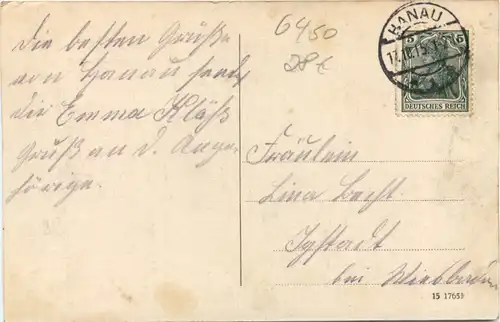 Die besten Grüße
von Hanau sendt
die Emma Kläß
Gruß an d. Ange-
hörige.
6450
28€
HANAU
DEUTSCHES REICH
Fräulein
Lina Becht
Igstadt
bei Wiesbaden
15 17653